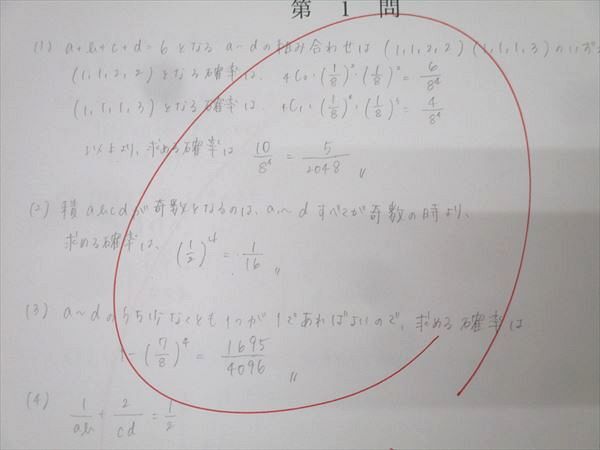 第 1 問
(1) a+b+c+d=6 となる a~dの組み合わせは (1,1,2,2) (1,1,1,3) のいず
(1,1,2,2)となる確率は、 4C2・(1/8)^2・(1/8)^2 = 6/8^4
(1,1,1,3)となる確率は、 4C1・(1/8)・(1/8)^3 = 4/8^4
以上より、求める確率は 10/8^4 = 5/2048 〃
(2) 積 abcd が奇数となるのは、a~d すべてが奇数の時より、
求める確率は、 (1/2)^4 = 1/16 〃
(3) a~dのうち少なくとも1つが1であればよいので、求める確率は
1-(7/8)^4 = 1695/4096 〃
(4) 1/ab + 2/cd = 1/2